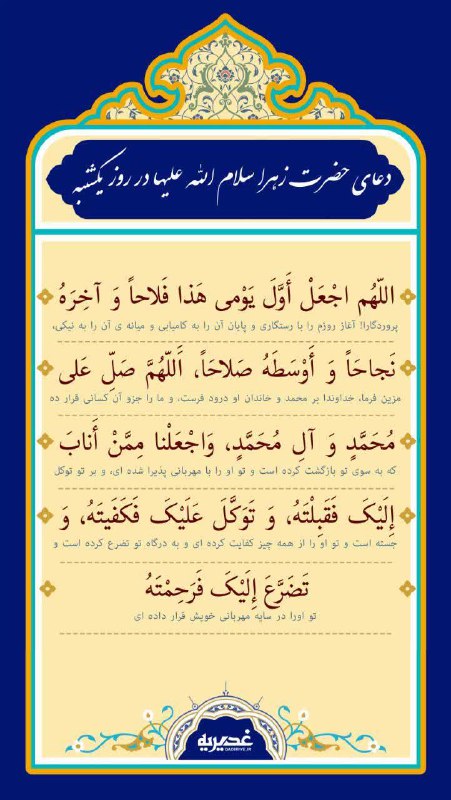 دعای حضرت زهرا سلام الله علیها در روز یکشنبه
اللّهُم اجْعَلْ أَوَّلَ یَوْمی هَذا فَلاحاً وَ آخِرَهُ
پروردگارا! آغاز روزم را با رستگاری و پایان آن را به کامیابی و میانه ی آن را به نیکی،
نَجاحَاً وَ أَوْسَطَهُ صَلاحَاً، اَللّهُمَّ صَلِّ عَلی
مزین فرما، خداوندا بر محمد و خاندان او درود فرست، و ما را جزو آن کسانی قرار ده
مُحَمَّدٍ وَ آلِ مُحَمَّدٍ، وَاجْعَلْنا مِمَّنْ أَنابَ
که به سوی تو بازگشت کرده است و تو او را با مهربانی پذیرا شده ای، و بر تو توکل
إِلَیْکَ فَقَبِلْتَهُ، وَ تَوَکَّلَ عَلَیْکَ فَکَفَیتَهُ، وَ
جسته است و تو او را از همه چیز کفایت کرده ای و به درگاه تو تضرع کرده است و
تَضَرَّعَ إِلَیْکَ فَرَحِمْتَهُ
تو اورا در سایه مهربانی خویش قرار داده ای
غدیریه
GADIRIYE.IR